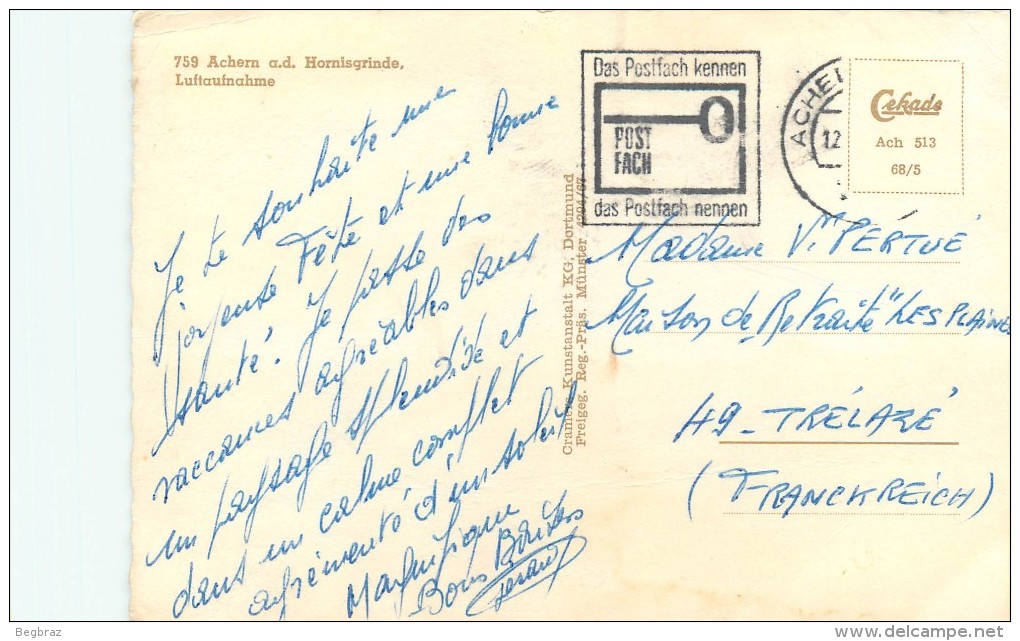 759 Achern a.d. Hornisgrinde,
Luftaufnahme
Je te souhaite une
joyeuse Fête et une bonne
santé. Je passe des
vaccances agréables dans
un paysage splendide et
dans un calme complet
agrémenté d'un soleil
Magnifique
Bons Baisers
Cramers Kunstanstalt KG, Dortmund
Freigeg. Reg.-Präs. Münster 4294/67
Das Postfach kennen
POST
FACH
das Postfach nennen
ACHE
12.
Cekade
Ach 513
68/5
Madame Vve PERTUÉ
Maison de Retraite "LES PLAINES
49_ TRÉLAZÉ
(FRANCKREICH)
Begbraz
delcampe.net